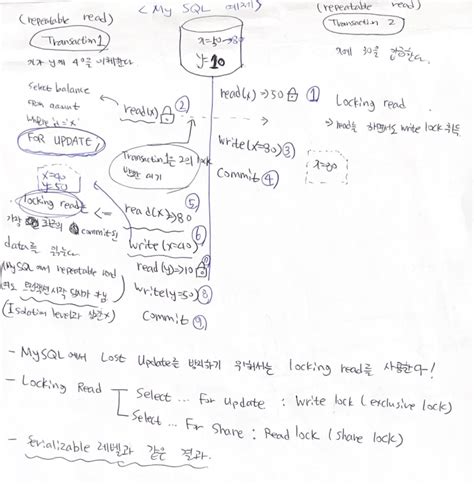 < My SQL 예제 >
(repeatable read)
Transaction 1
x가 y에 40을 이체한다
Select balance
from account
where id='x'
FOR UPDATE
x=40
y=50
locking read는
가장 최근의 commit된
data를 읽는다.
(MySQL에서 repeatable read
(Isolation level과 상관x)
x=50→80
y=10
read(x) ②
Transaction1은 2의 lock
반환 대기
<= read(x)=>80 ⑤
write(x=40) ⑥
read(y)=>10
write(y=50) ⑧
commit ⑨
(repeatable read)
Transaction 2
x에 30을 입금한다.
read(x)=>50 ①
write(x=80) ③
commit ④
Locking read
→ read를 하면서도 write lock 취득
x=80
- MySQL에서 Lost Update를 방지하기 위해서는 locking read를 사용한다!
- Locking Read
Select ... For Update : Write lock (exclusive lock)
Select ... For Share : Read lock (share lock)
- Serializable 레벨과 같은 결과.